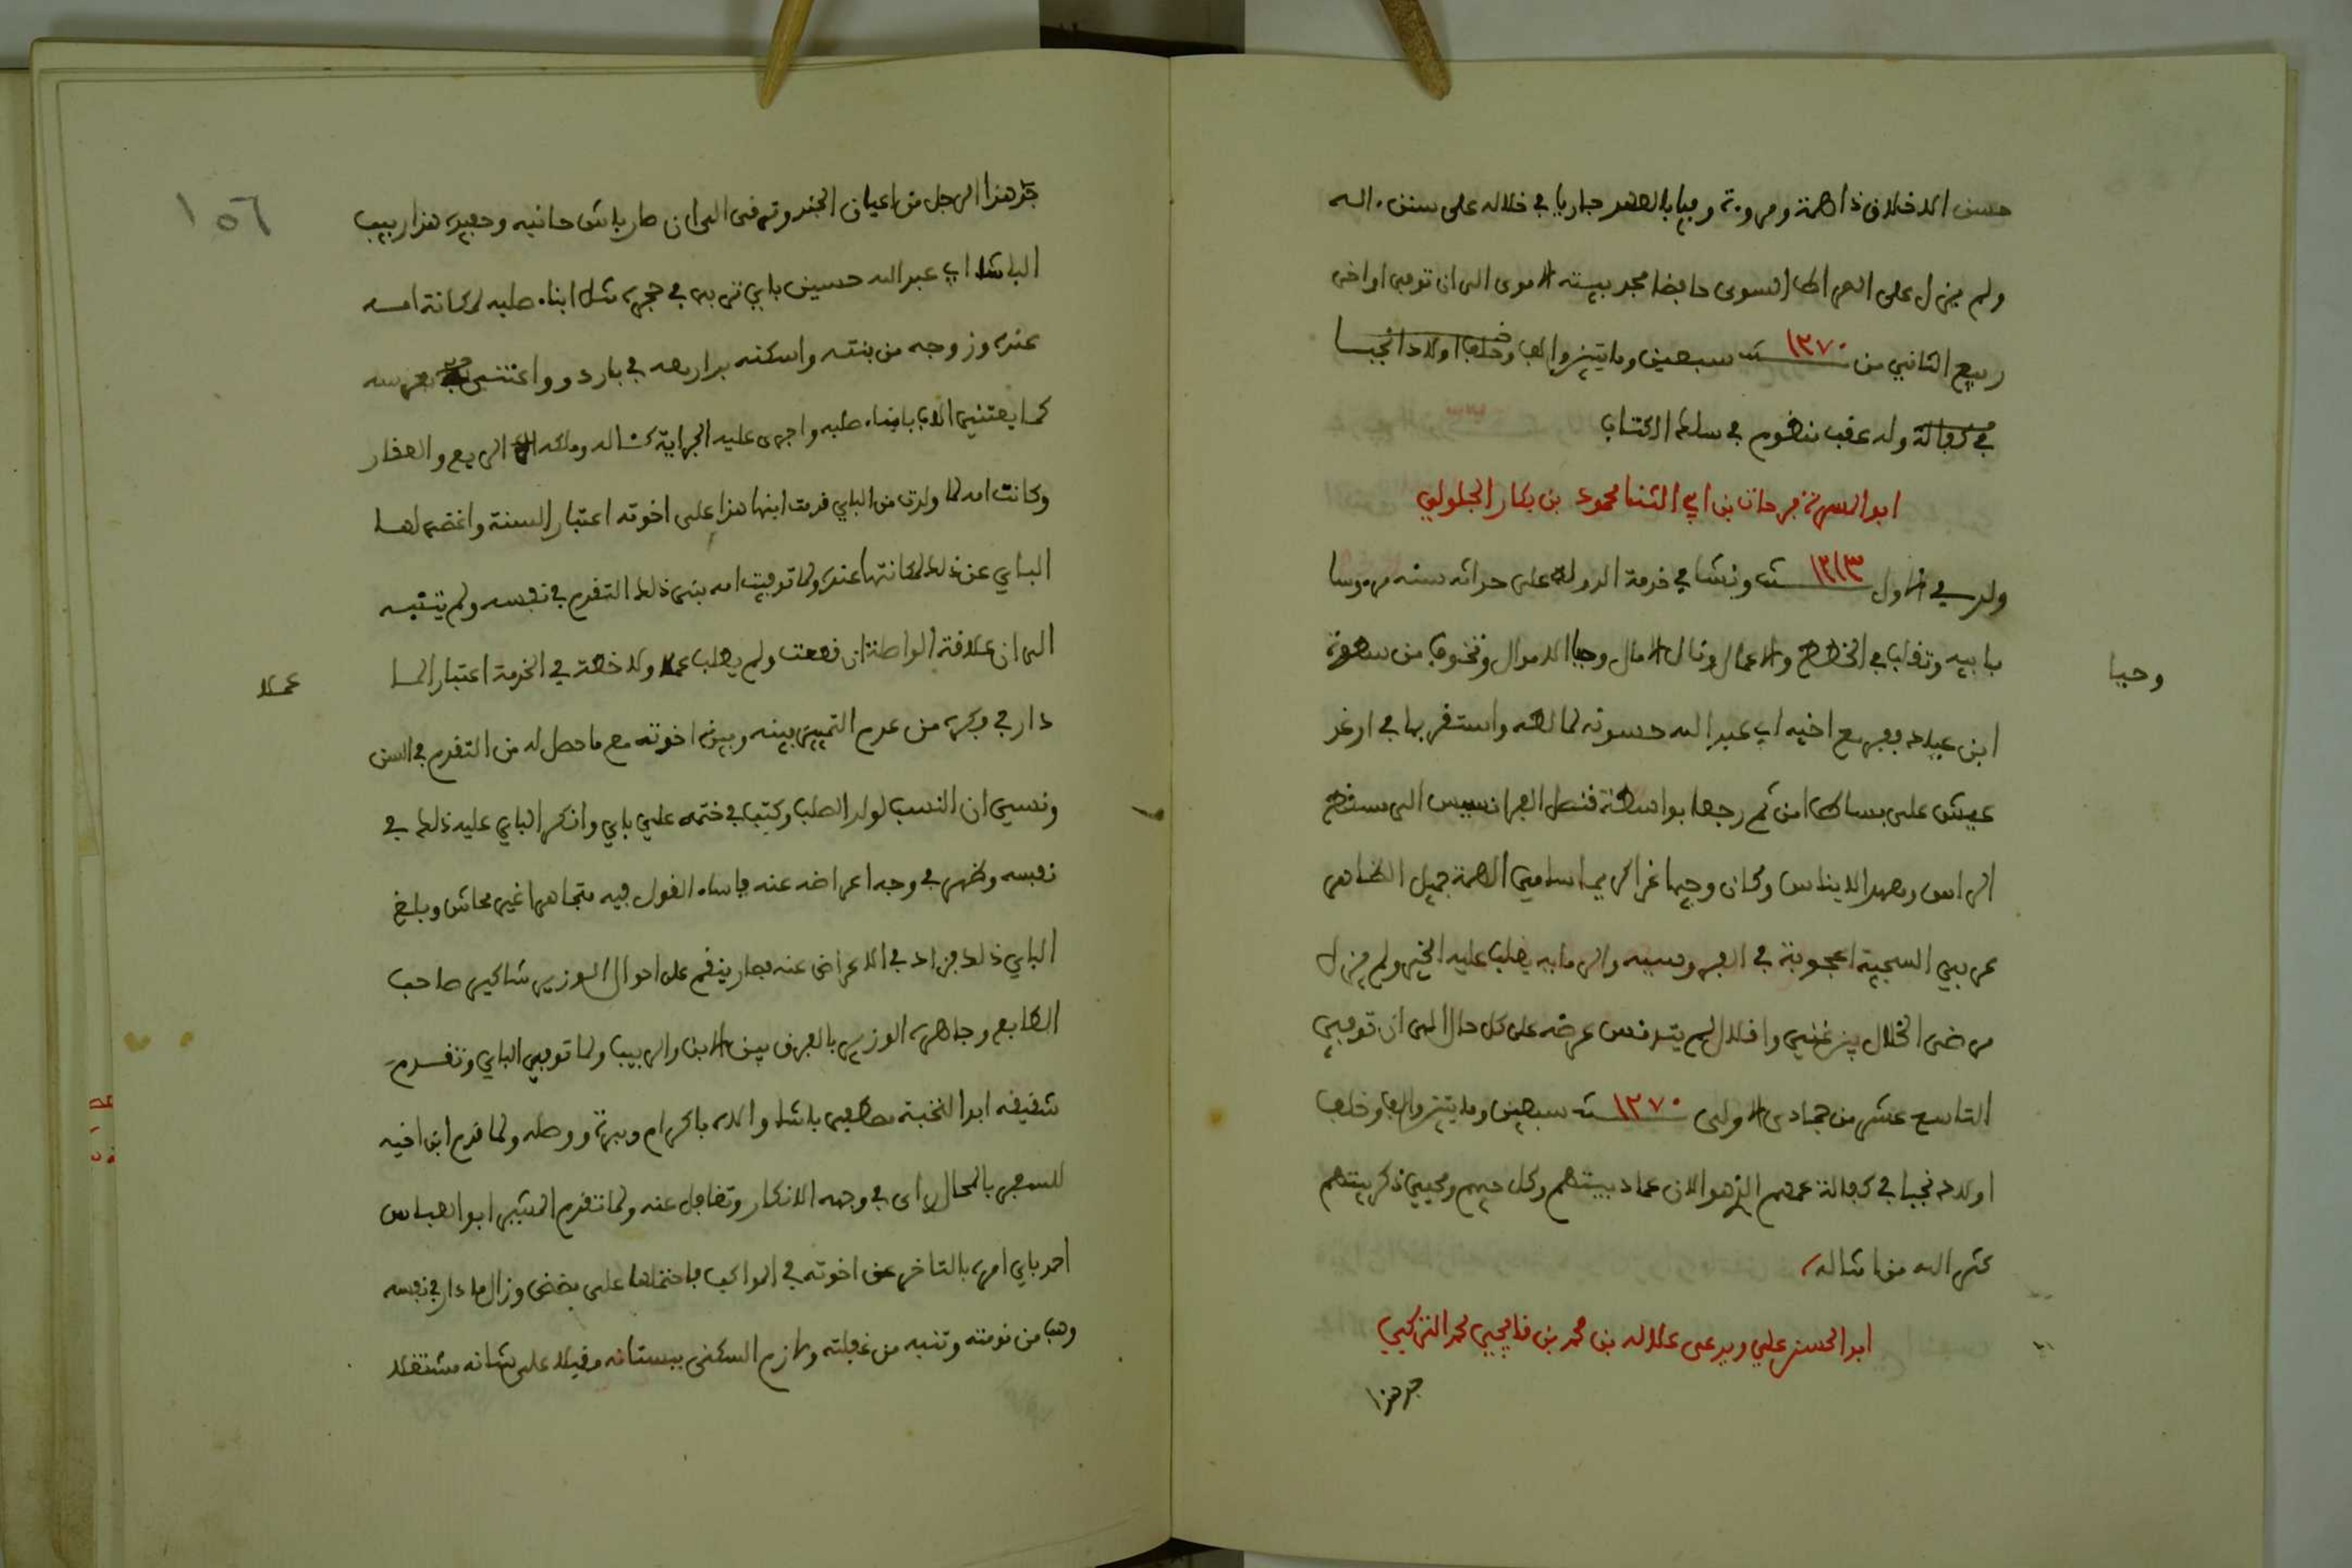 حسن الاخلاق ذا همة ومروءة وفيا بالعهد جاريا في خلاله على سنن ءاله
ولم يزل على الصراط السوي حافظا مجد بيته الاموى الى ان توفى اواخر
ربيع الثاني من سنة ١٢٧٠ سبعين وماتين والف وخلف اولادا نجبا
في كفالة وله عقب منظوم في سلك الكتاب
ابو المسرة فرحات بن ابي الثنا محمود بن بكار الجلولي
ولد في اول سنة ١٢١٣ ونشا في خدمة الدولة على حداثه سنه مروسا
بابيه وتقلب في الخطط والاعمال ونال الامال وجبا الاموال وتخوف من سطوة
وجبا
ابن عياد ففر مع اخيه ابي عبد الله حسونه لمالطه واستقر بها في ارغد
عيش على بساط امن ثم رجعا بواسطة قنصل الفرانسيس الى مسقط
الراس ومعهد الايناس وكان وجيها غرا كريما سامي الهمة جميل الظاهر
عربي السجية اعجوبة في الفروسيه والرمايه يغلب عليه الخير ولم يزل
مرضى الخلال بين غني واقلال لم يتدنس عرضه على كل حال الى ان توفي
التاسع عشر من جمادى الاولى سنة ١٢٧٠ سبعين وماتين والف وخلف
اولاده نجبا في كفالة عمهم الذ هو الان عماد بيتهم وكل حيهم ومحيي ذكر ميتهم
كثر الله من امثاله
ابو الحسن علي ويدعى علالله بن محمد بن قايجي محمد التركي
جد هذا
١٥٦
جد هذا الرجل من اعيان الجند وترقى الى ان صار باش حانبه وحفيده هذا ربيب
الباشا ابي عبد الله حسين باي تربى في حجره مثل ابناء صلبه لمكانة امه
عنده وزوجه من بنته واسكنه بدار معه في باردو واعتنى بعرسه
كما يعتني الاب بابناء صلبه واجرى عليه الجراية كمثاله وملكه الريع والعقار
وكانت امه لما ولدت من الباي قدمت ابنها هذا على اخوته اعتبار السنة واغتفر لها
الباي عن ذلك لمكانتها عنده ولما توفيت امه بنى ذلك التقدم في نفسه ولم يتنبه
الى ان علاقة الواسطة انقطعت ولم يطلب عملا ولا خطة في الخدمة اعتبارا لما
عملا
دار في فكره من عدم التمييز بينه وبين اخوته مع ما حصل له من التقدم في السن
ونسي ان النسب لولد الصلب وكتب في ختمه علي باي وانكر الباي عليه ذلك في
نفسه وظهر في وجه اعراضه عنه فاساء القول فيه متجاهرا غير محاش وبلغ
الباي ذلك فزاد في الاعراض عنه فصار ينقم على احوال الوزير شاكير صاحب
الطابع وجاهره الوزير بالفرق بين الابن والربيب ولما توفي الباي وتقدم
شقيقه ابو النخبة مصطفى باشا والاه باكرام ومبرة ووصله ولما قدم ابن اخيه
للسفر بالمحال راى في وجهه الانكار وتغافل عنه ولما تقدم المشير ابو العباس
احمد باي امره بالتاخر عن اخوته في المواكب فاحتملها على مضض وزال ما دار في نفسه
وهب من نومته وتنبه من غفلته ولازم السكنى ببستانه مقبلا على شانه مشتغلا